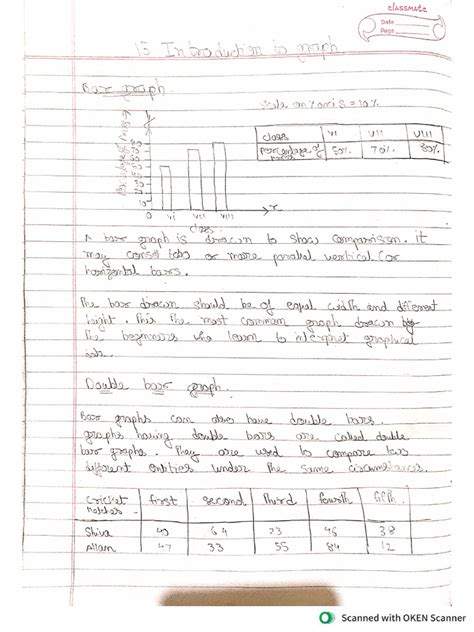 classmate
Date
Page
15 Introduction to graph
Bar graph.
Scale on Y axis = 10%
class VI VII VIII
percentage of 50% 70% 80%
Y
80
70
60
50
40
30
20
10
0 VI VII VIII X
class
A bar graph is drawn to show comparison. it
may two or more parallel vertical (or
horizontal bars.
The bar drawn should be of equal width and different
hight. This the most common graph drawn by
the beginners who learn to interpret graphical
Double bar graph.
Bar graphs can also have double bars.
graphs having double bars are called double
bar graphs. They are used to compare two
different entities under the same circumstances.
Cricket first second third fourth fifth
Matches
Shiva 40 64 23 46 38
Allam 47 33 55 84 12
Scanned with OKEN Scanner